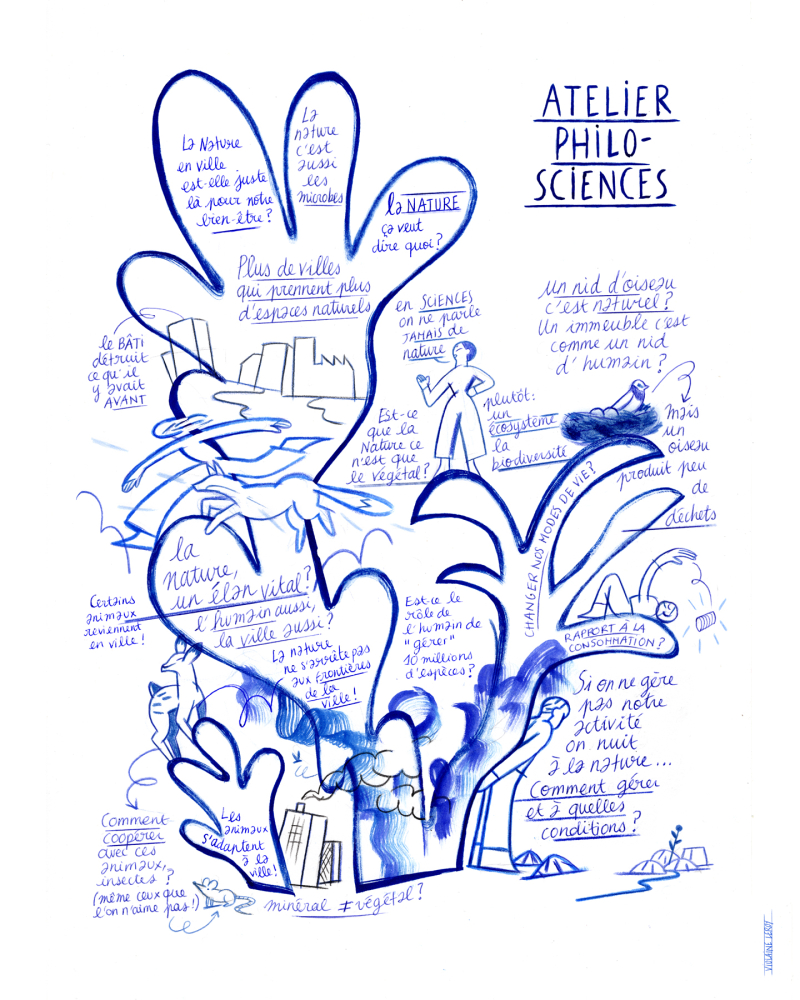 ATELIER
PHILO-
SCIENCES
La Nature
en ville
est-elle juste
là pour notre
bien-être ?
La
nature
c'est
aussi
les
microbes
la NATURE
ça veut
dire quoi ?
Plus de villes
qui prennent plus
d'espaces naturels
le BÂTI
détruit
ce qu'il
y avait
AVANT
en SCIENCES
on ne parle
JAMAIS de
nature
plutôt :
un
écosystème
la
biodiversité
Est-ce
que la
Nature ce
n'est que
le végétal ?
un nid d'oiseau
c'est naturel ?
Un immeuble c'est
comme un nid
d'humain ?
mais
un
oiseau
produit peu
de
déchets
la
nature,
un élan vital ?
l'humain aussi,
la ville aussi ?
La nature
ne s'arrête pas
aux frontières
de la
ville !
Certains
animaux
reviennent
en ville !
Est-ce le
rôle de
l'humain de
"gérer"
10 millions
d'espèces ?
CHANGER NOS MODES DE VIE ?
RAPPORT À LA
CONSOMMATION ?
Si on ne gère
pas notre
activité
on nuit
à la nature...
Comment gérer
et à quelles
conditions ?
Comment
coopérer
avec ces
animaux,
insectes ?
(même ceux que
l'on n'aime pas !)
Les
animaux
s'adaptent
à la
ville !
minéral ≠ végétal ?
VIOLAINE LEROY